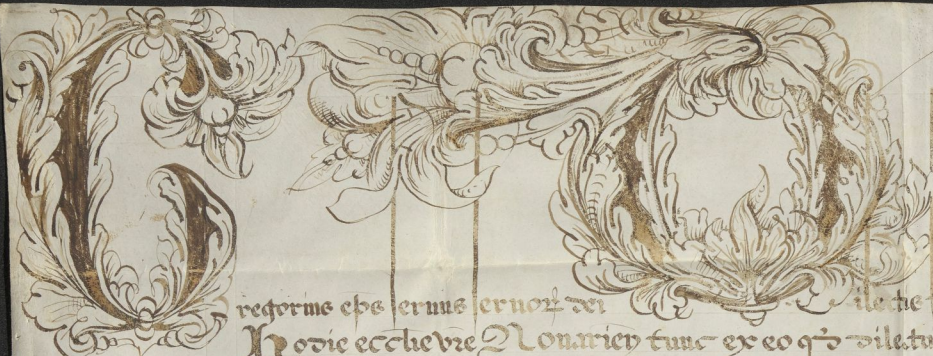 Gregorius eps servus servor̄ dei Dilectis
Hodie ecclie vre Novarien̄ tunc ex eo qđ dilectu